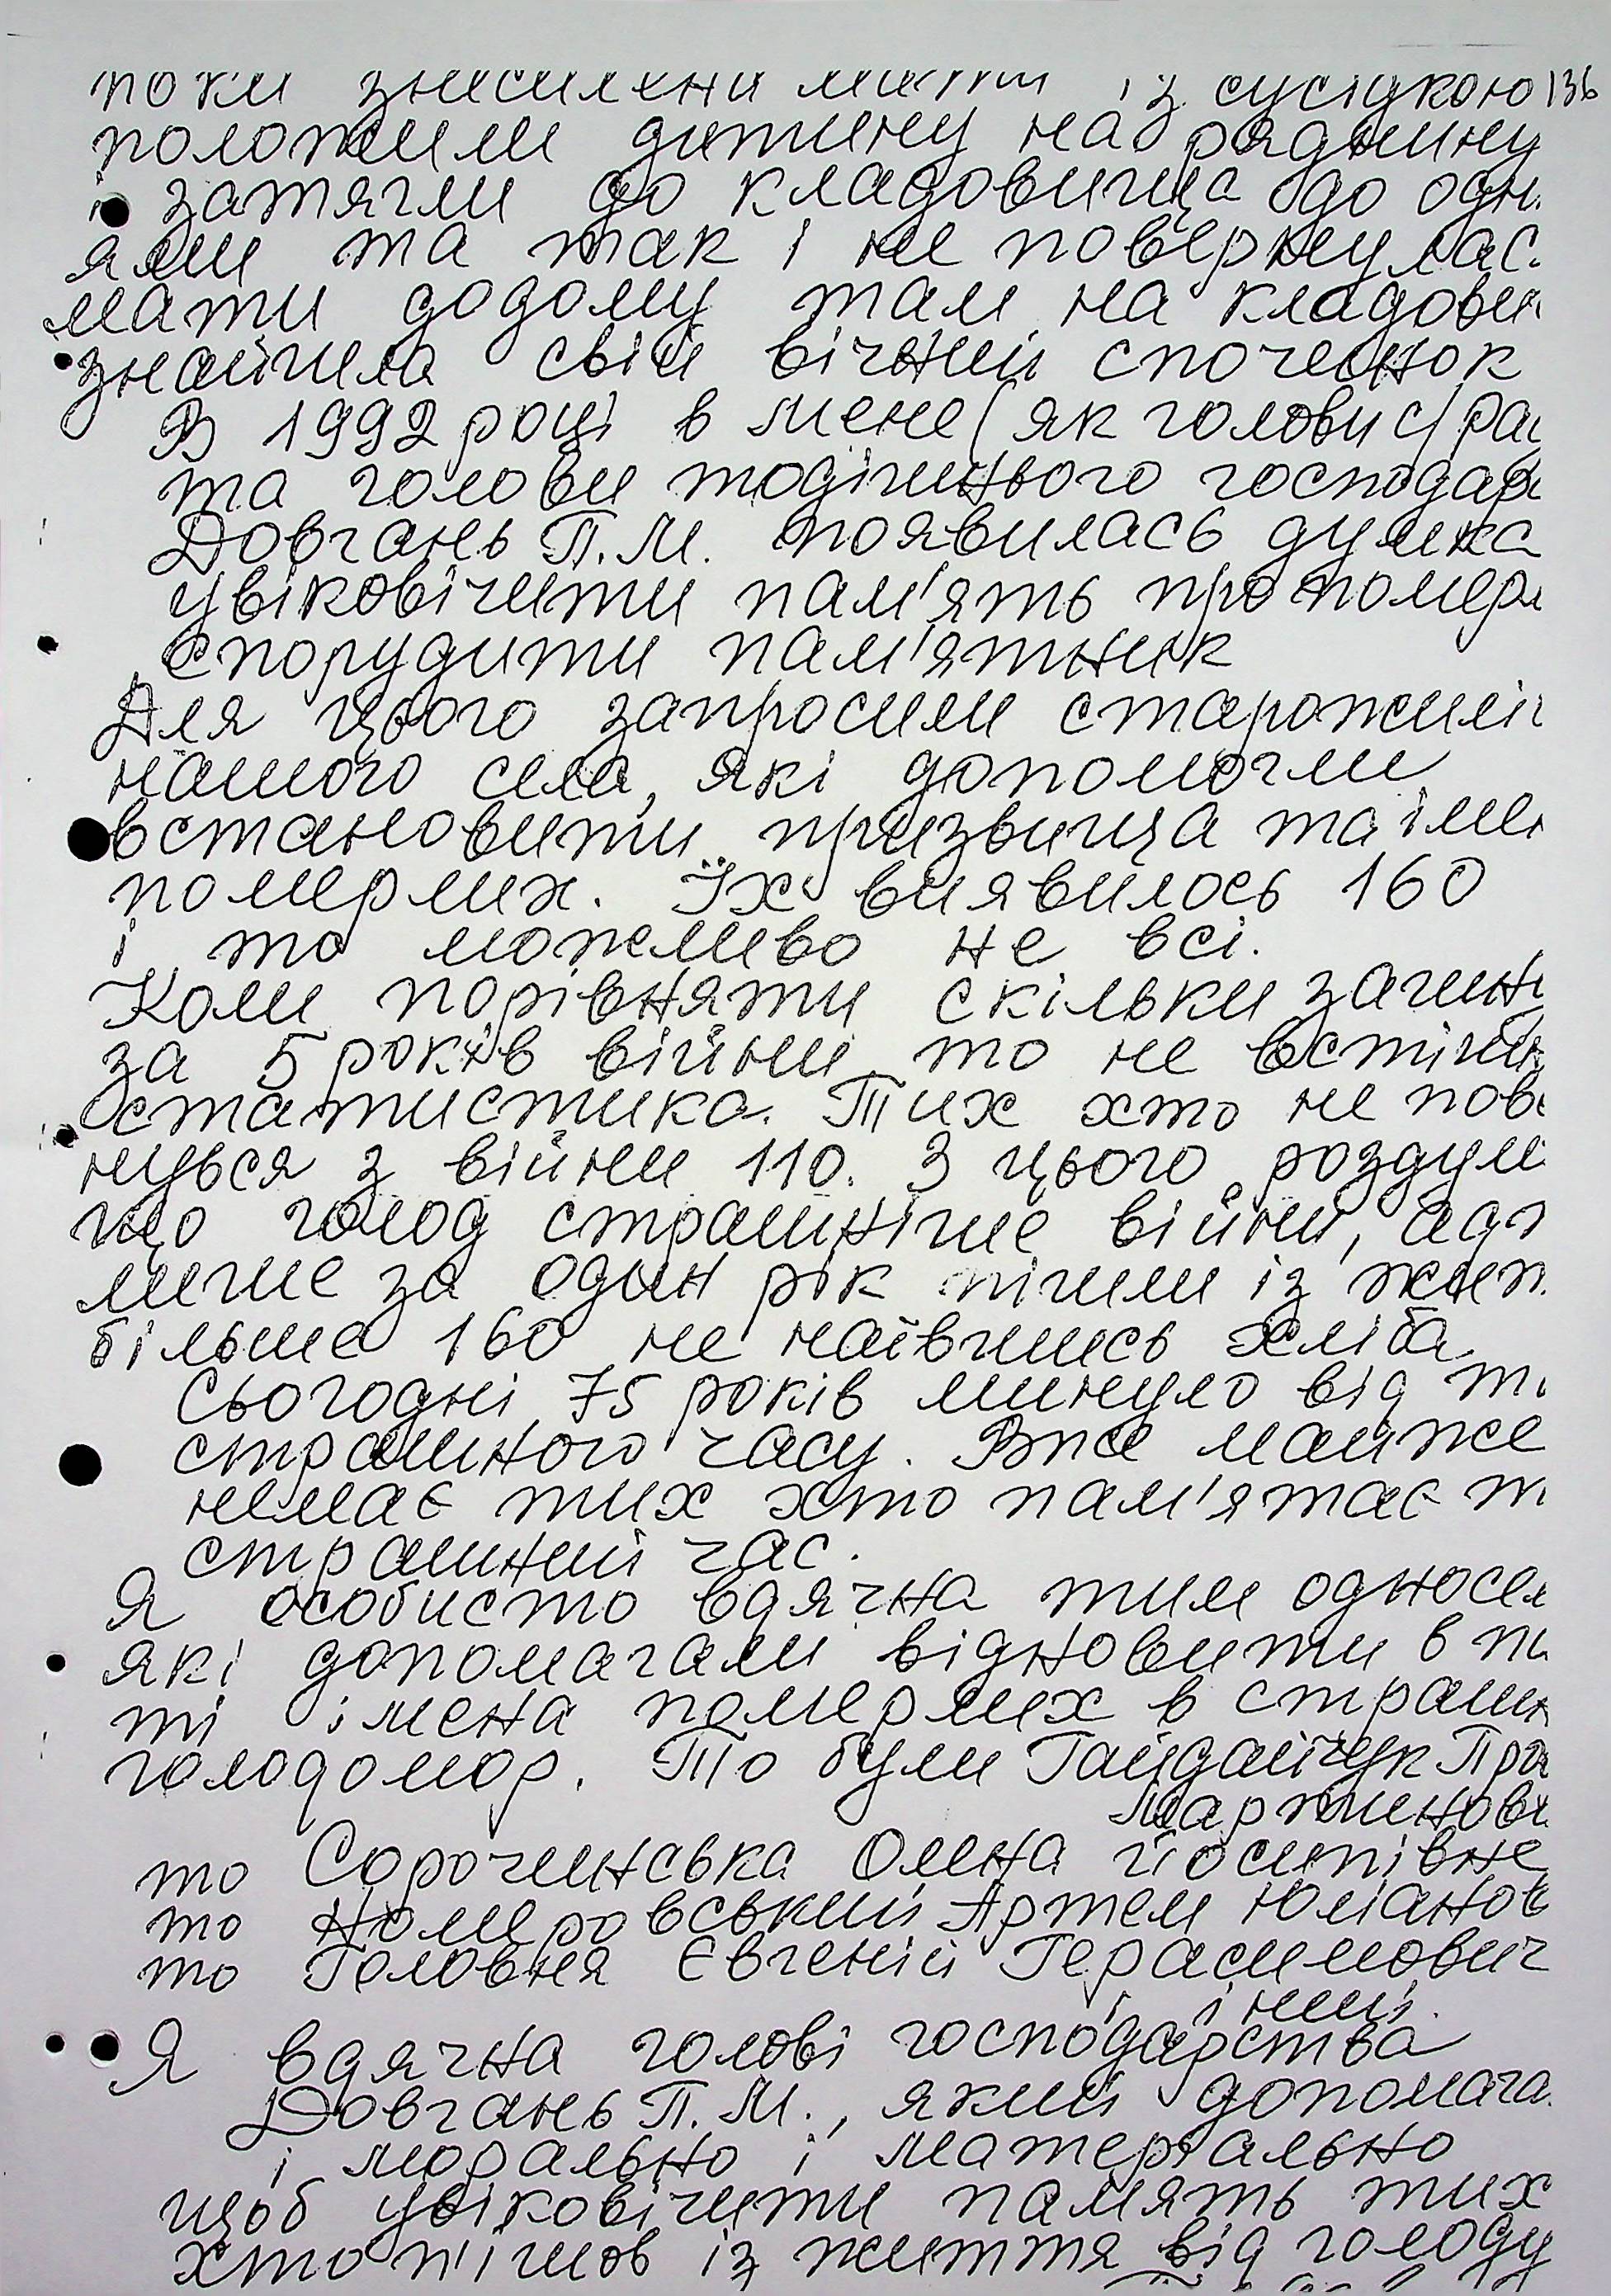 поки знесилена мати із сусідкою 136
положили дитину на раднину
і затягли до кладовища до одн
ями та так і не повернулас
мати додому там на кладови
знайшла свій вічний спочинок
В 1992 році в мене (як голови с/ра
та голови тодішнього господар
Довгань П.М. появилась думка
увіковічити пам'ять про помер
спорудити пам'ятник
Для цього запросили старожилі
нашого села, які допомогли
встановити призвища та імен
померлих. Їх виявилось 160
і то можливо не всі.
Коли порівняти скільки загин
за 5 років війни то не втішн
статистика. Тих хто не пове
нувся з війни 110. З цього роздум
що голод страшніше війни, адж
лише за один рік пішли із жит
більше 160 не наївшись хліба
Сьогодні 75 років минуло від т
страшного часу. Вже майже
немає тих хто пам'ятає т
страшний час.
Я особисто вдячна тим односел
які допомагали відновити в па
ті імена померлих в страшн
голодомор. То були Гайдайчук Пра
Мартинови
то Сорочинська Олена Йосипівне
то Номеровський Артем Юліанов
то Головня Євгеній Герасимович
і інші.
Я вдячна голові господарства
Довгань П.М., який допомага
і морально і матеріально
щоб увіковічити память тих
хто пішов із життя від голоду